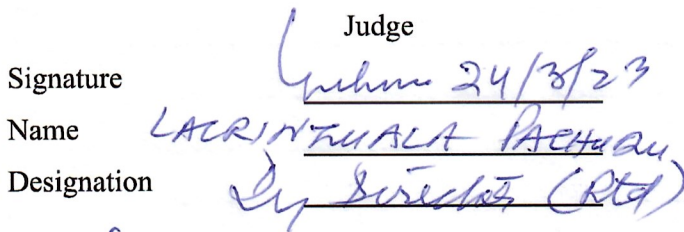 Judge
Signature 24/3/23
Name LALRINZUALA PACHUAU
Designation Dy Director (Rtd)